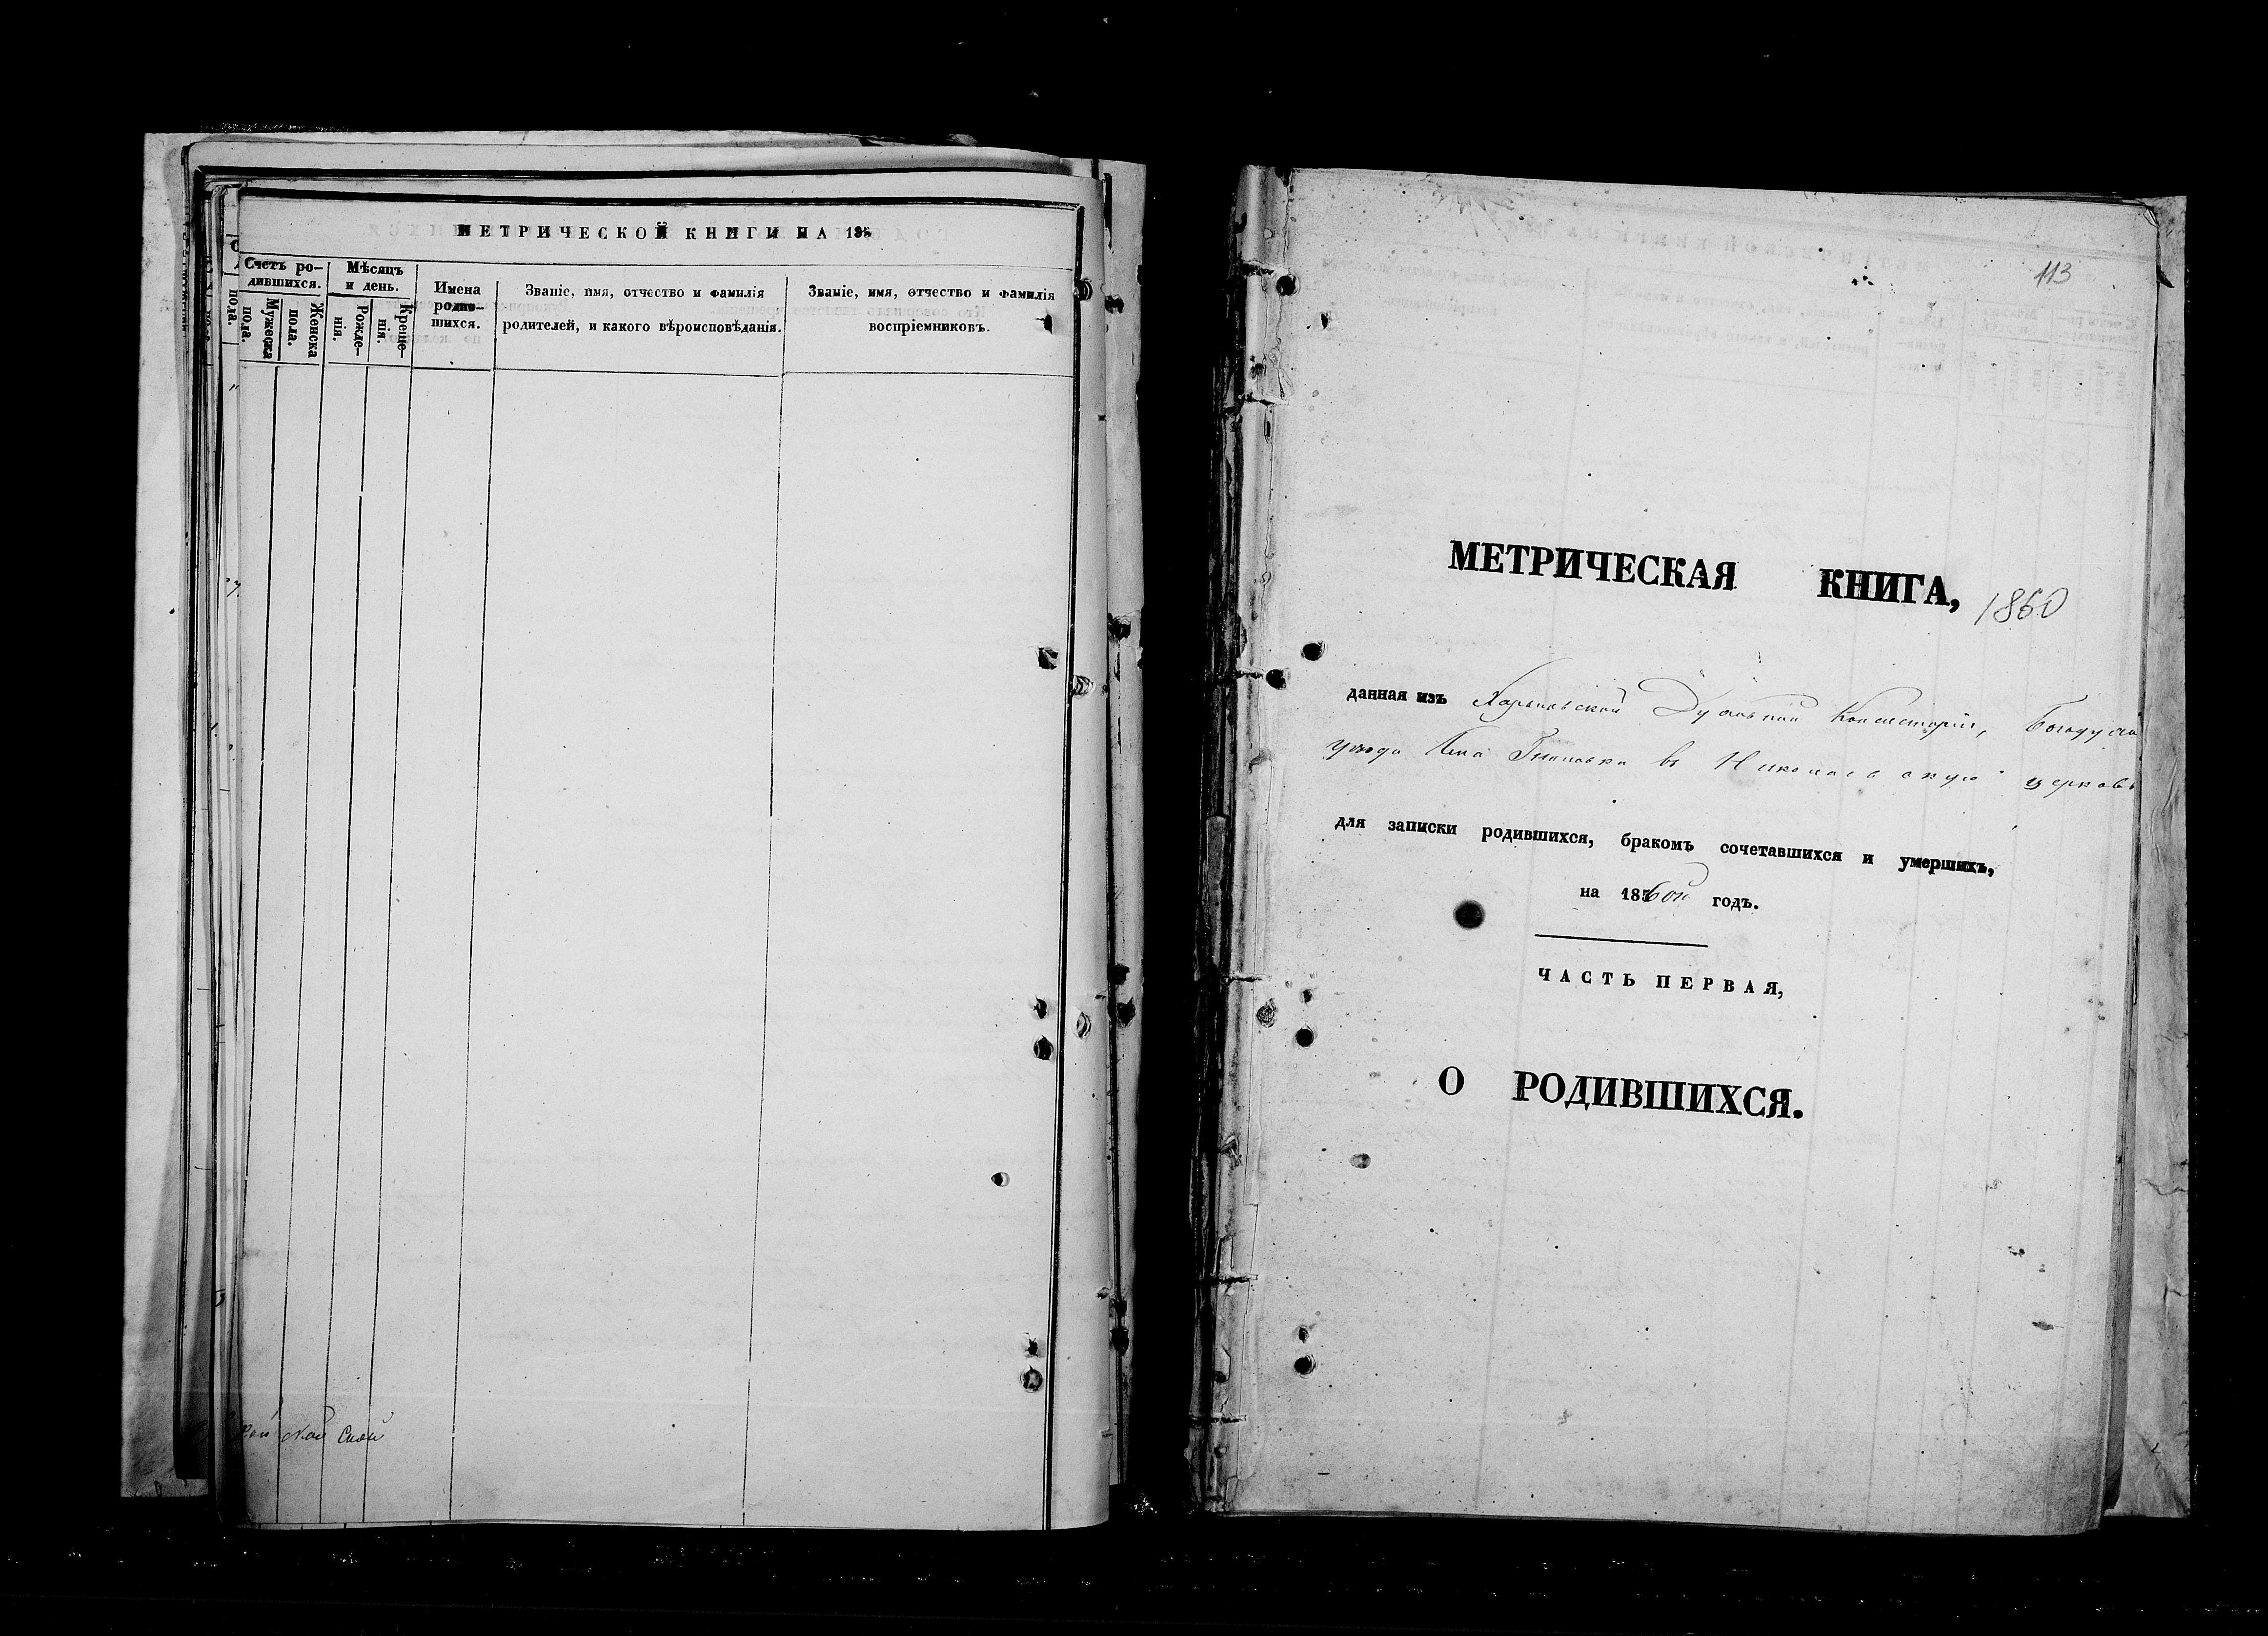 МЕТРИЧЕСКОЙ КНИГИ НА 185
Счетъ ро-
дившихся.
Мужеска
пола.
Женска
пола.
Мѣсяцъ
и день.
Рожде-
нія.
Креще-
нія.
Имена
родив-
шихся.
Званіе, имя, отчество и фамилія
родителей, и какого вѣроисповѣданія.
Званіе, имя, отчество и фамилія
воспріемниковъ.
пола.
113
МЕТРИЧЕСКАЯ КНИГА, 1860
данная изъ Харьковской Духовной Консисторіи, Богодухо
уѣзда въ Николаевскую церковь
для записки родившихся, бракомъ сочетавшихся и умершихъ,
на 1860й годъ.
ЧАСТЬ ПЕРВАЯ,
О РОДИВШИХСЯ.